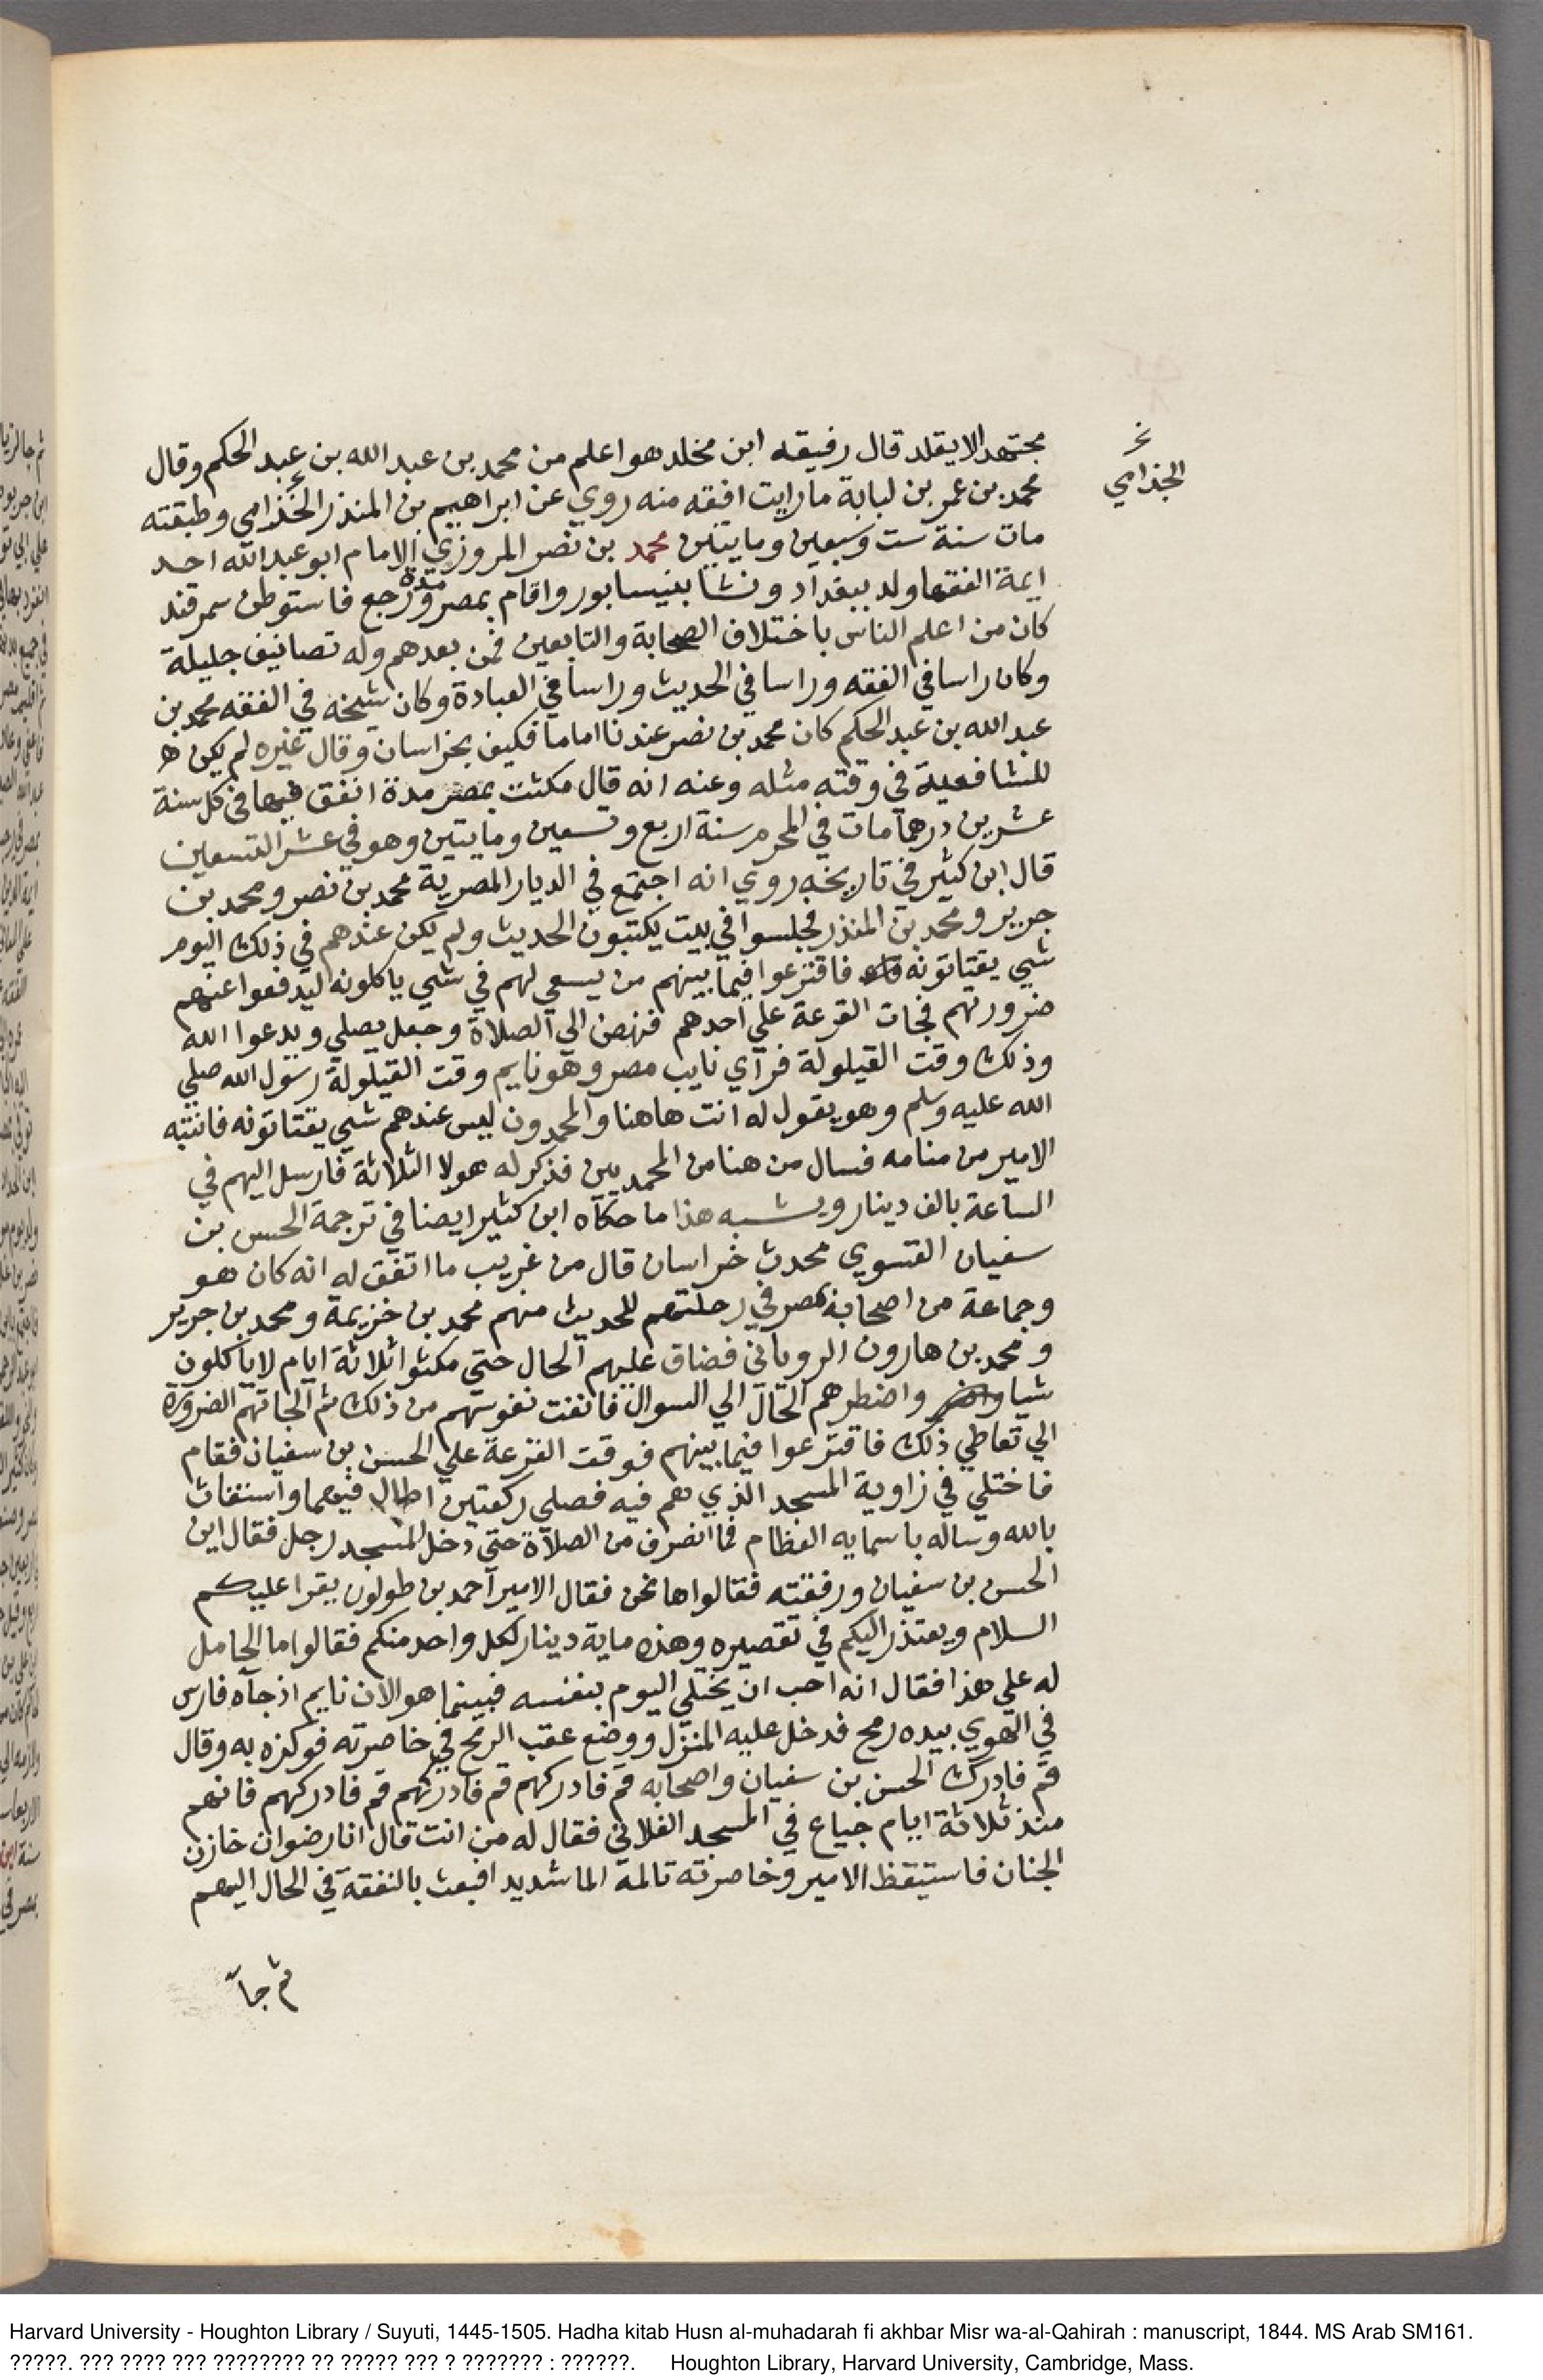 نخ
الجذامي
مجتهدا لا يقلد قال رفيقه ابن مخلد هو اعلم من محمد بن عبد الله بن عبد الحكم وقال
محمد بن عمر بن لبابة ما رايت افقه منه روي عن ابراهيم بن المنذر الحذرامي وطبقته
مات سنة ست وسبعين ومايتين محمد بن نصر المروزي الامام ابو عبد الله احد
ايمة الفقها ولد ببغداد ونشا بنيسابور واقام بمصر مدة ورجع فاستوطن سمرقند
كان من اعلم الناس باختلاف الصحابة والتابعين فمن بعدهم وله تصانيف جليلة
وكان راسا في الفقه وراسا في الحديث وراسا في العبادة وكان شيخه في الفقه محمد بن
عبد الله بن عبد الحكم كان محمد بن نصر عندنا اماما فكيف بخراسان وقال غيره لم يكن
للشافعية في وقته مثله وعنه انه قال مكثت بمصر مدة انفق فيها في كل سنة
عشرين درهما مات في المحرم سنة اربع وتسعين ومايتين وهو في عشر التسعين
قال ابن كثير في تاريخه روي انه اجتمع في الديار المصرية محمد بن نصر ومحمد بن
جرير ومحمد بن المنذر فجلسوا في بيت يكتبون الحديث ولم يكن عندهم في ذلك اليوم
شي يقتاتونه فاقترعوا فيما بينهم من يسعي لهم في شي ياكلونه ليدفعوا عنهم
ضرورتهم فجات القرعة علي احدهم فنهض الي الصلاة وجعل يصلي ويدعوا الله
وذلك وقت القيلولة فراي نايب مصر وهو نايم وقت القيلولة رسول الله صلي
الله عليه وسلم وهو يقول له انت هاهنا والمحمدون ليس عندهم شي يقتاتونه فانتبه
الامير من منامه فسال من هنا من المحمدين فذكر له هولا الثلاثة فارسل اليهم في
الساعة بالف دينار ويشبه هذا ما حكاه ابن كثير ايضا في ترجمة الحسن بن
سفيان الفتسوي محدث خراسان قال من غريب ما اتفق له انه كان هو
وجماعة من اصحابه بمصر في رحلتهم للحديث منهم محمد بن خزيمة ومحمد بن جرير
ومحمد بن هارون الروياني فضاق عليهم الحال حتي مكثوا ثلاثة ايام لا ياكلون
شيا واضطرهم الحال الي السوال فانفت نفوسهم من ذلك ثم الجاتهم الضرورة
الي تعاطي ذلك فاقترعوا فيما بينهم فوقت القرعة علي الحسن بن سفيان فقام
فاختلي في زاوية المسجد الذي هم فيه فصلي ركعتين اطال فيهما واستغاث
بالله وساله باسمايه العظام فما انصرف من الصلاة حتي دخل المسجد رجل فقال اين
الحسن بن سفيان ورفقته فقالوا ها نحن فقال الامير احمد بن طولون يقرا عليكم
السلام ويعتذر اليكم في تقصيره وهذه ماية دينار لكل واحد منكم فقالوا ما الحامل
له علي هذا فقال انه احب ان يختلي اليوم بنفسه فبينما هو الان نايم اذ جاه فارس
في الهوي بيده رمح فدخل عليه المنزل ووضع عقب الرمح في خاصرته فوكزه به وقال
قم فادرك الحسن بن سفيان واصحابه قم فادركهم قم فادركهم قم فادركهم فانهم
منذ ثلاثة ايام جياع في المسجد الفلاني فقال له من انت قال انا رضوان خازن
الجنان فاستيقظ الامير وخاصرته تالمه الما شديدا فبعث بالنفقة في الحال اليهم
ثم جا
Harvard University - Houghton Library / Suyuti, 1445-1505. Hadha kitab Husn al-muhadarah fi akhbar Misr wa-al-Qahirah : manuscript, 1844. MS Arab SM161.
?????. ??? ???? ??? ???????? ?? ????? ??? ? ??????? : ??????. Houghton Library, Harvard University, Cambridge, Mass.